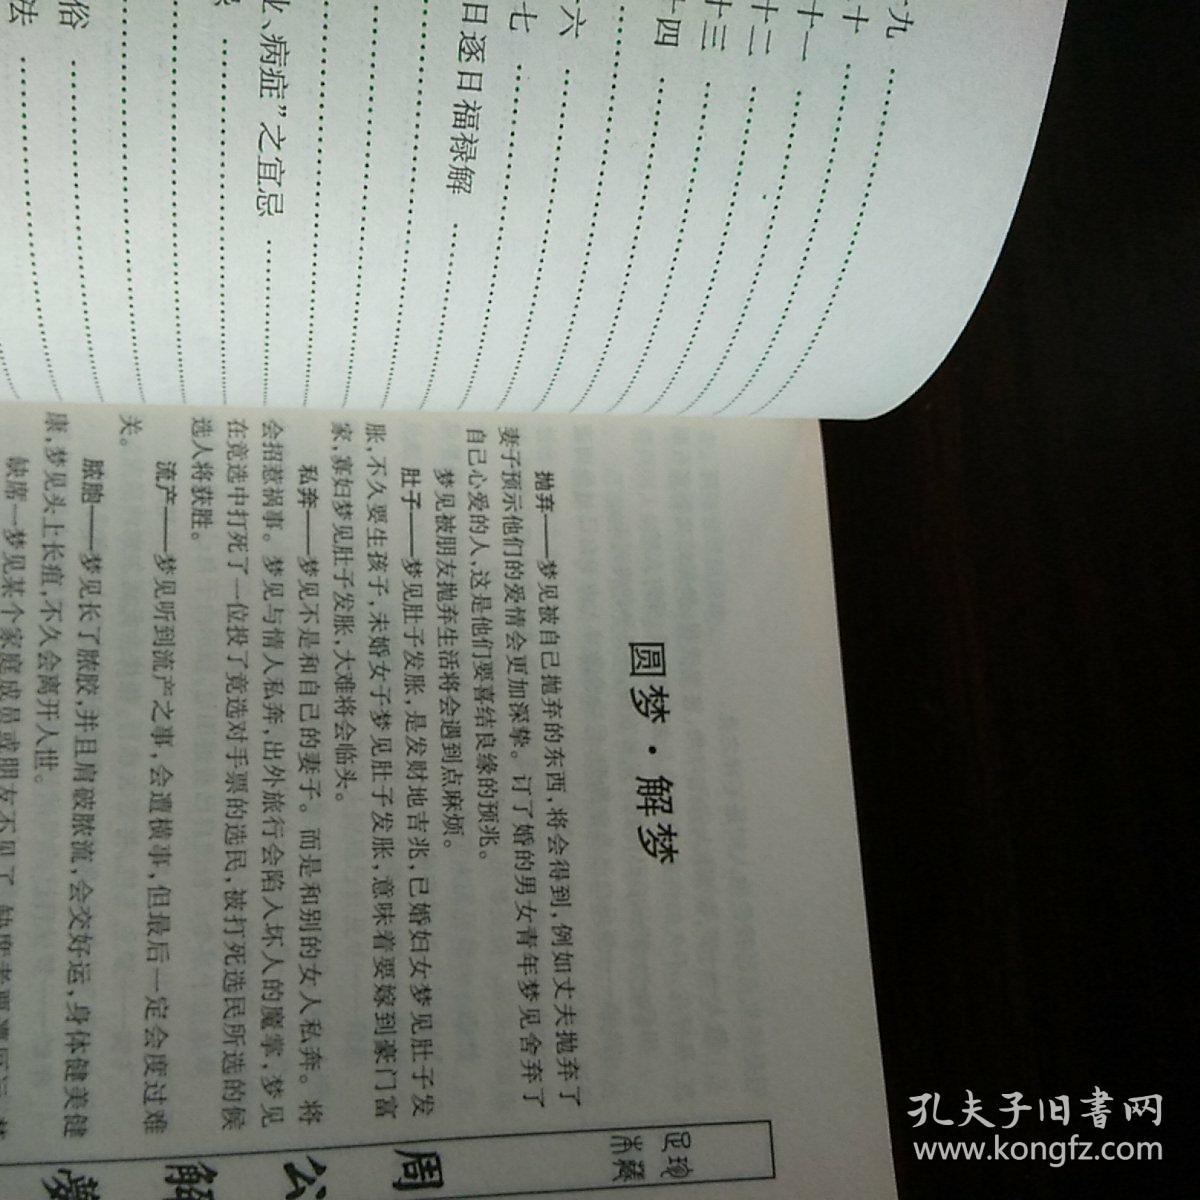 十九
十
十一
十二
十三
十四
六
七
日逐日福禄解
业、病症”之宜忌
俗
法
圆梦·解梦
抛弃——梦见被自己抛弃的东西,将会得到,例如丈夫抛弃了
妻子预示他们的爱情会更加深挚。订了婚的男女青年梦见舍弃了
自己心爱的人,这是他们要喜结良缘的预兆。
梦见被朋友抛弃生活将会遇到点麻烦。
肚子——梦见肚子发胀,是发财地吉兆,已婚妇女梦见肚子发
胀,不久要生孩子,未婚女子梦见肚子发胀,意味着要嫁到豪门富
家,寡妇梦见肚子发胀,大难将会临头。
私奔——梦见不是和自己的妻子。而是和别的女人私奔。将
会招惹祸事。梦见与情人私奔,出外旅行会陷入坏人的魔掌,梦见
在竟选中打死了一位投了竟选对手票的选民,被打死选民所选的候
选人将获胜。
流产——梦见听到流产之事,会遭横事,但最后一定会度过难
关。
脓胞——梦见长了脓胶,并且肩破脓流,会交好运,身体健美健
康,梦见头上长疽,不久会离开人世。
缺席—梦见某个家庭成员或朋友不见了
周
公
解
夢
孔夫子旧書网
www.kongfz.com